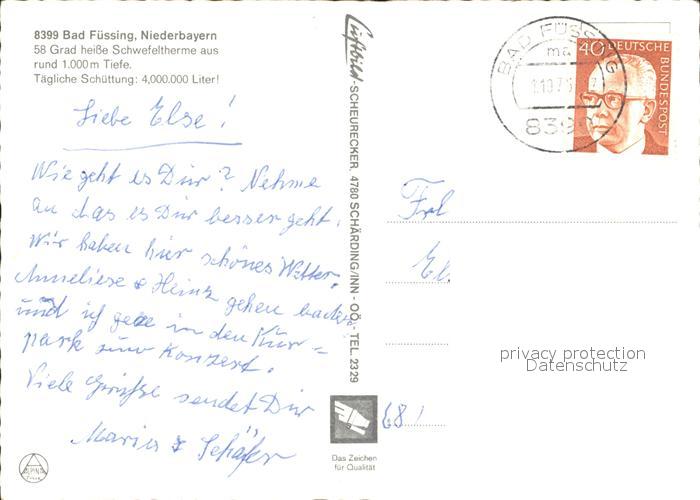 8399 Bad Füssing, Niederbayern
58 Grad heiße Schwefeltherme aus
rund 1.000 m Tiefe.
Tägliche Schüttung: 4,000.000 Liter!
Liebe Else!
Wie geht es Dir? Nehme
an das es Dir besser geht.
Wir haben hier schönes Wetter.
Anneliese & Heinz gehen baden
und ich gehe in den Kur=
park zum Konzert.
Viele Grüße sendet Dir
Maria & Schäfer
Luftbild-SCHEURECKER, 4780 SCHÄRDING/INN - OÖ. - TEL. 2329
Das Zeichen
für Qualität
BAD FÜSSING
8399
40 DEUTSCHE
BUNDESPOST
Frl
El.
68
privacy protection
Datenschutz